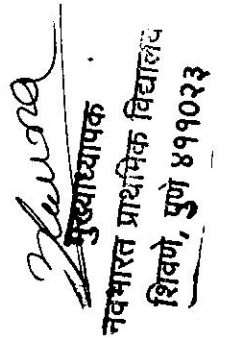 मुख्याध्यापक
नवभारत प्राथमिक विद्यालय
शिवणे, पुणे ४११०२३